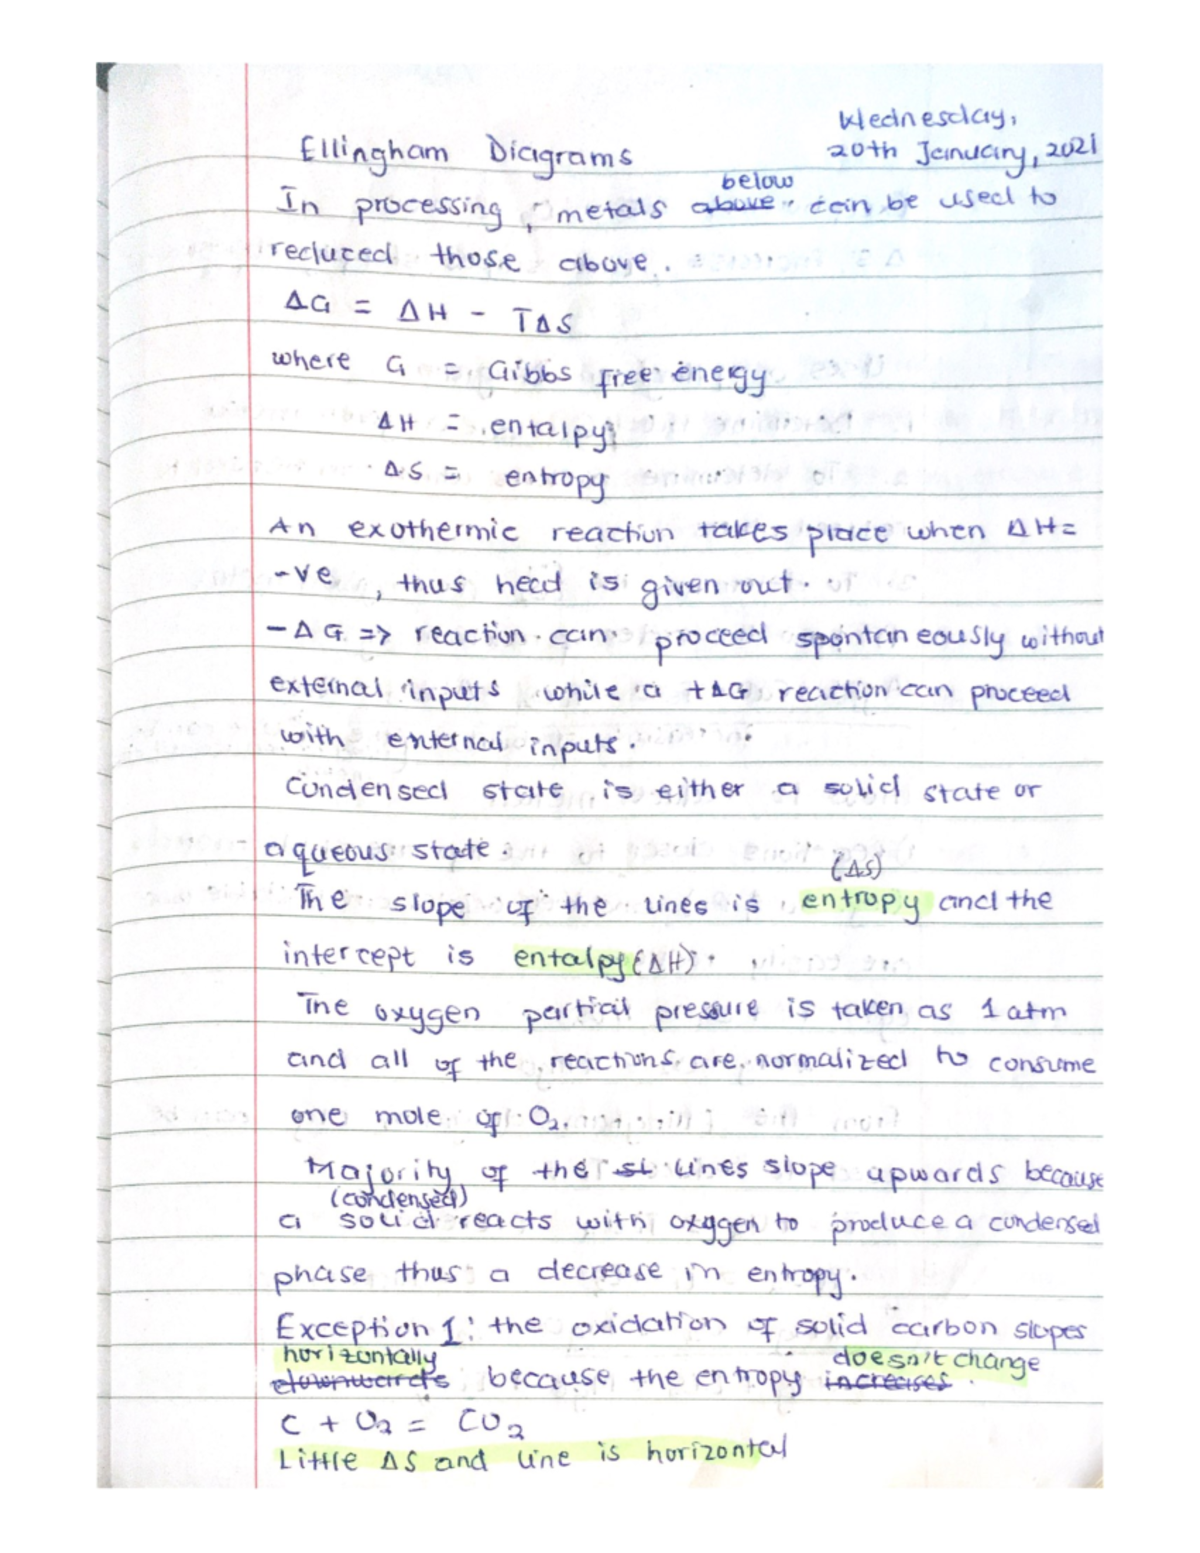 Wednesday,
Ellingham Diagrams 20th January, 2021
below
In processing, metals above can be used to
reduced those above.
ΔG = ΔH - TΔS
where G = Gibbs free energy
ΔH = entalpy
ΔS = entropy
An exothermic reaction takes place when ΔH=
-ve, thus head is given out.
-ΔG => reaction can proceed spontaneously without
external inputs while a +ΔG reaction can proceed
with external inputs.
Condensed state is either a solid state or
aqueous state.
(ΔS)
The slope of the lines is entropy and the
intercept is entalpy (ΔH).
The oxygen partial pressure is taken as 1 atm
and all of the reactions are normalized to consume
one mole of O₂.
Majority of the sl lines slope upwards because
(condensed)
a solid reacts with oxygen to produce a condensed
phase thus a decrease in entropy.
Exception 1: the oxidation of solid carbon slopes
horizontally doesn't change
downwards because the entropy increases.
C + O₂ = CO₂
Little ΔS and line is horizontal